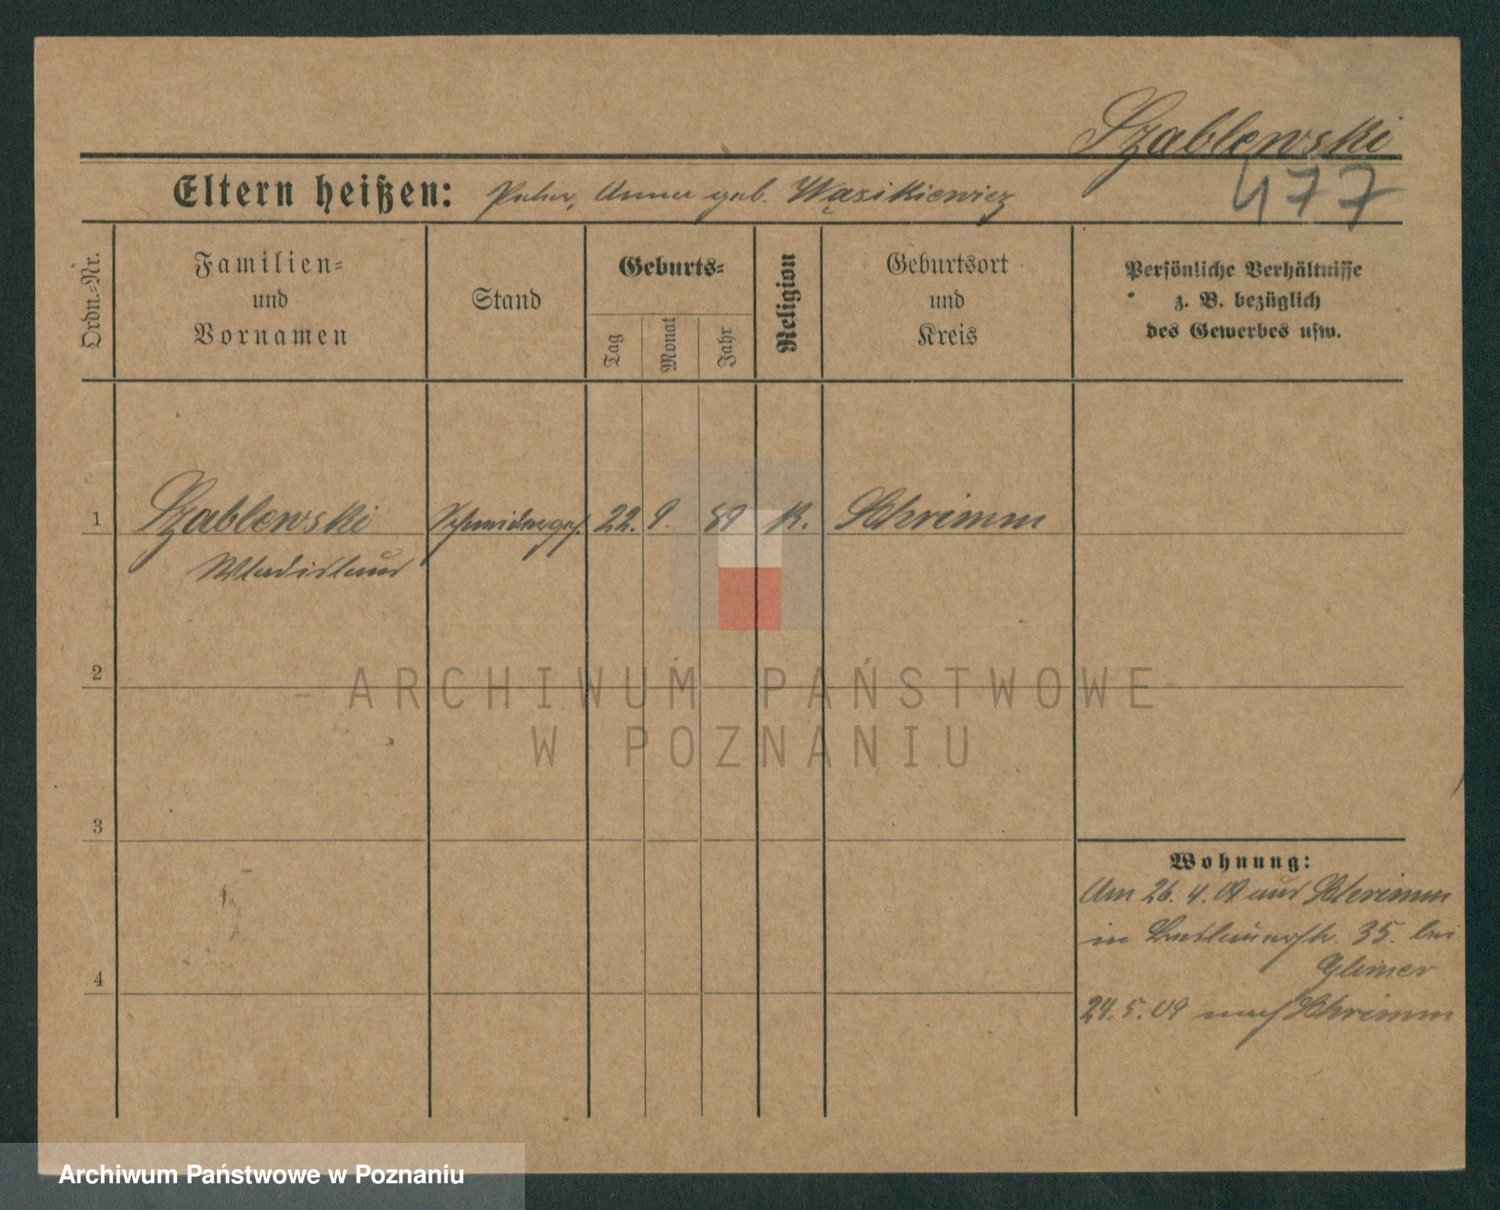 Szablewski
477
Eltern heißen: Peter, Anna geb. Wąsikiewicz
Ordn.-Nr.
Familien-
und
Vornamen
Stand
Geburts-
Tag
Monat
Jahr
Religion
Geburtsort
und
Kreis
Persönliche Verhältnisse
z. B. bezüglich
des Gewerbes usw.
1 Szablewski Schneiderges. 22. 9. 89 K. Schrimm
Wladislaus
2
ARCHIWUM PAŃSTWOWE
W POZNANIU
3
4
Wohnung:
Am 26. 4. 09 aus Schrimm
in 35. bei
24. 5. 09 nach Schrimm
Archiwum Państwowe w Poznaniu